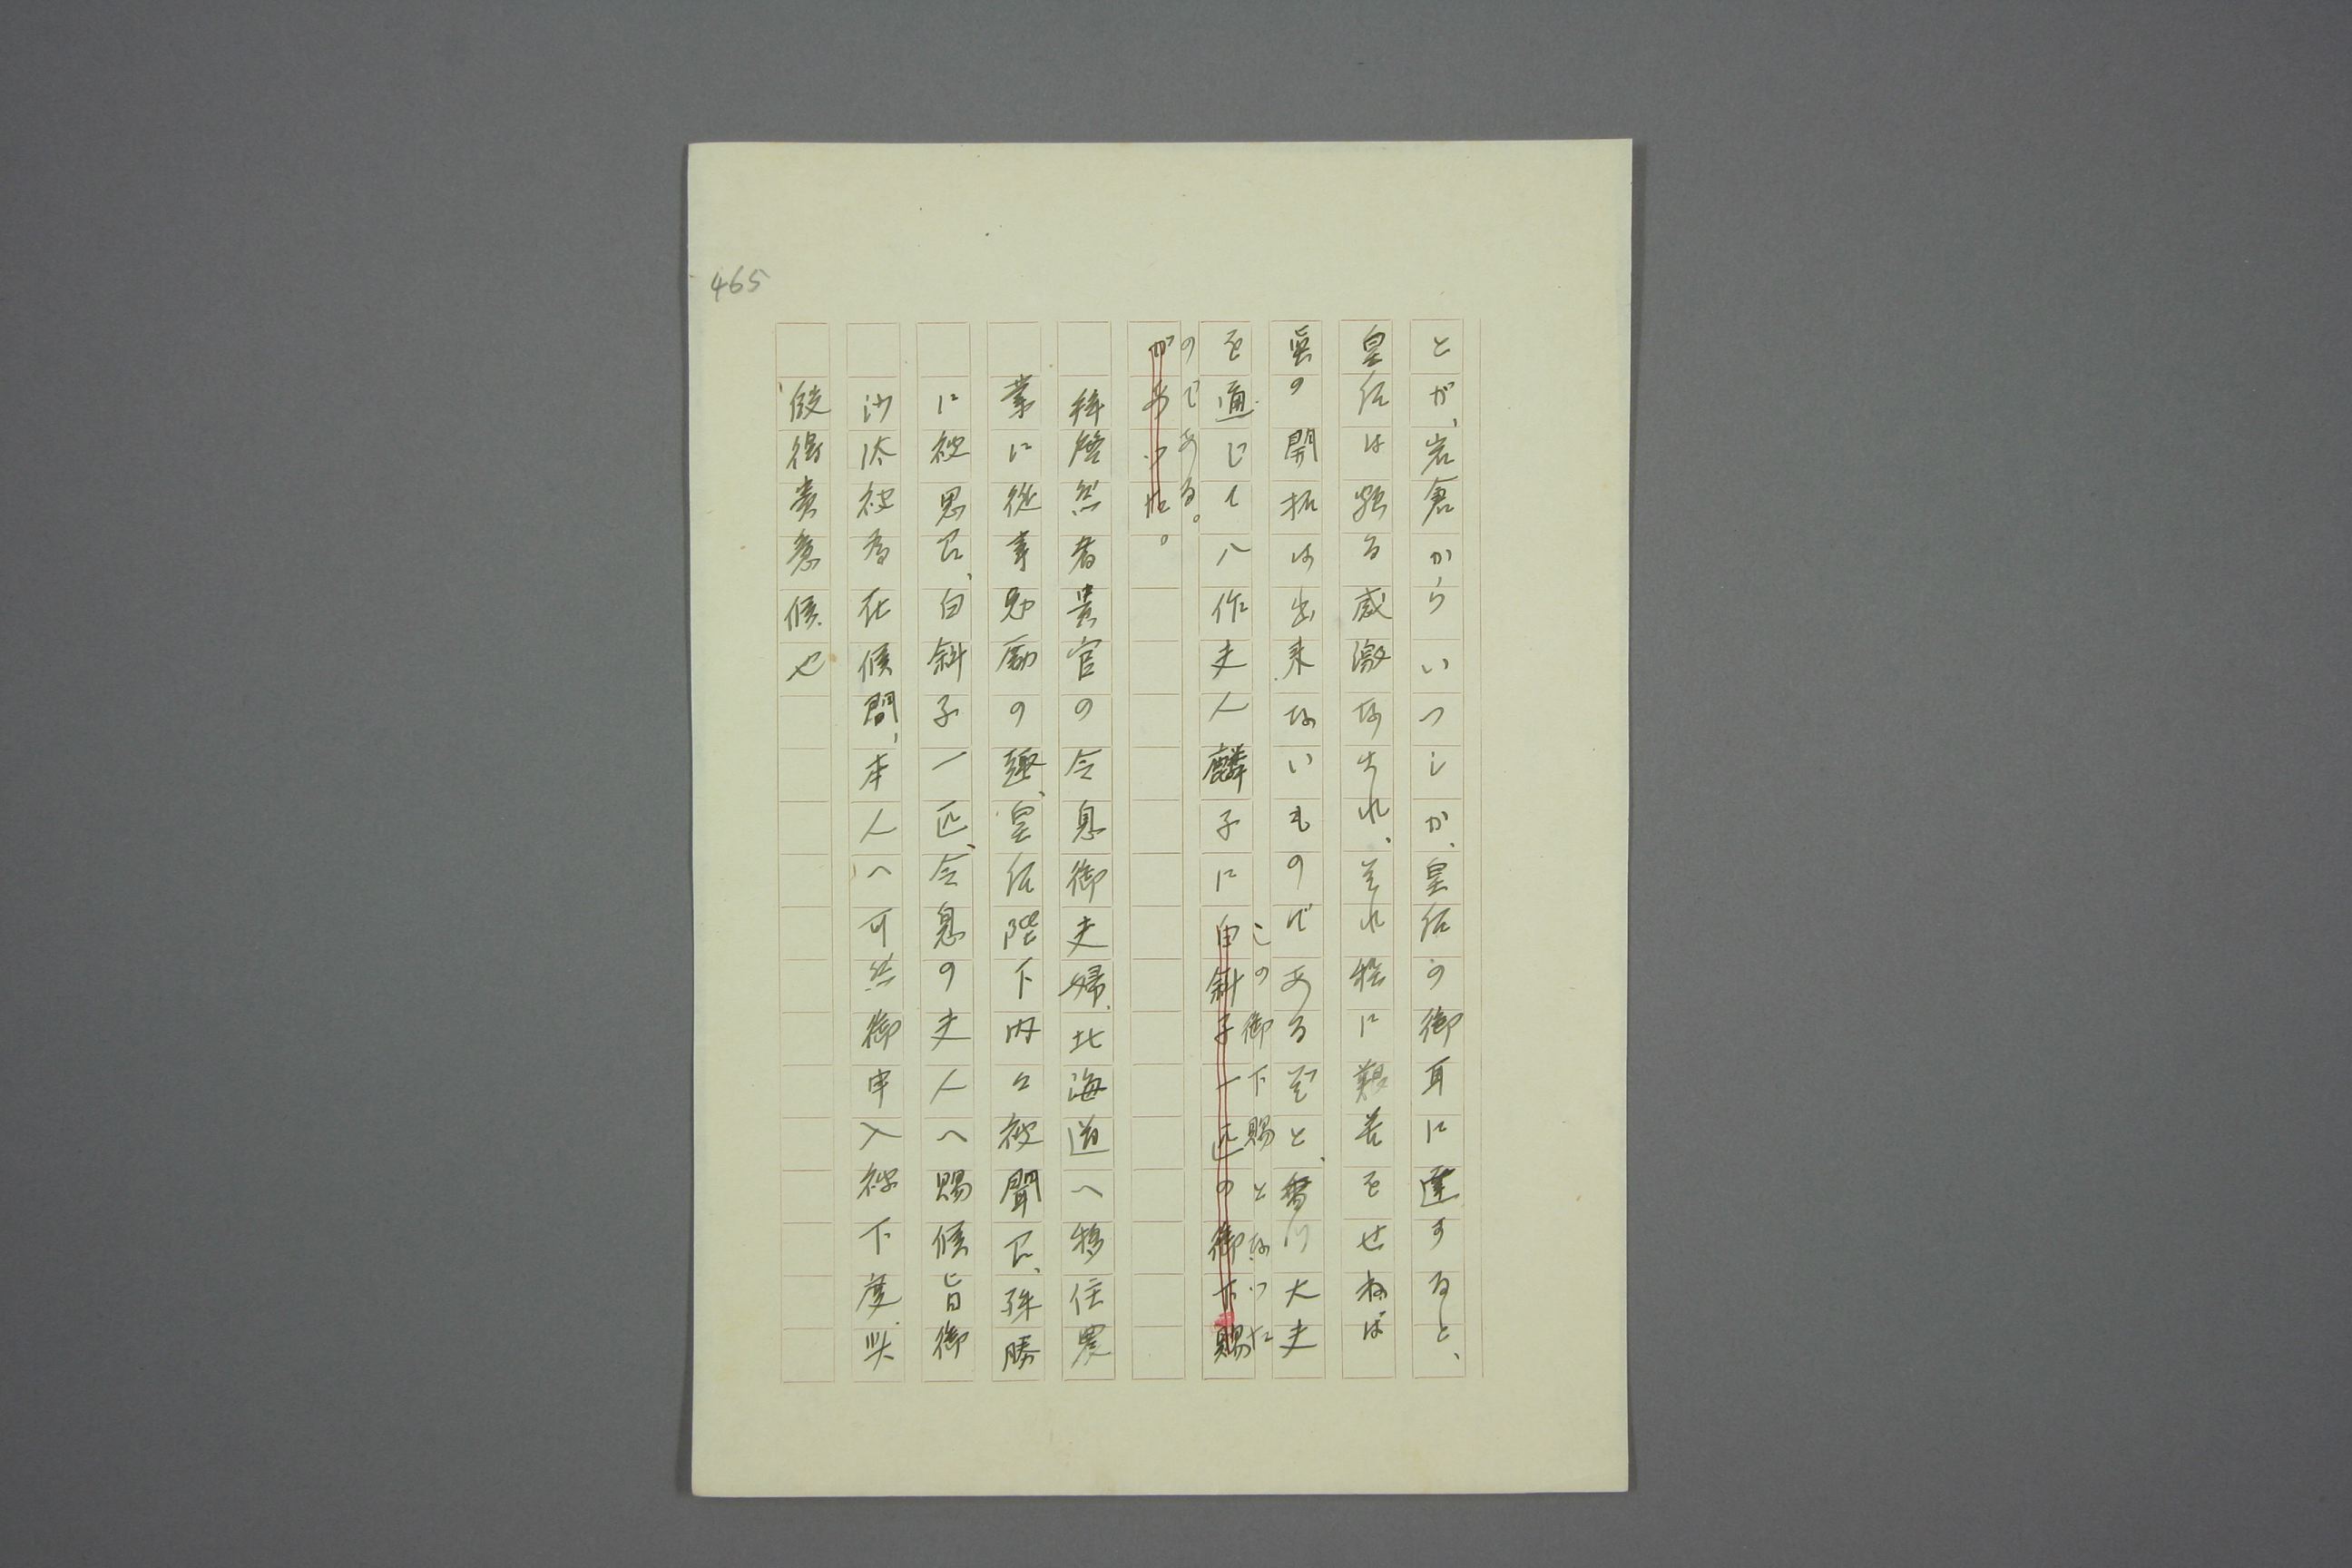 465
とが、岩倉からいつしか、皇后の御耳に達すると、
皇后は頗る感激なされ、それ程に艱苦をせねば
蝦夷の開拓は出来ないものであるぞと、香川大夫
を通じて八作夫人麟子に白斜子一匹の御下賜
この御下賜となつた
のである。
があつた。
拝啓然者貴官の令息御夫婦、北海道へ移住農
業に従事勉励の趣、皇后陛下内々被聞召、殊勝
に被思召、白斜子一匹、令息の夫人へ賜候旨御
沙汰被為在候間、本人へ可然御申入被下度、此
段得貴意候也